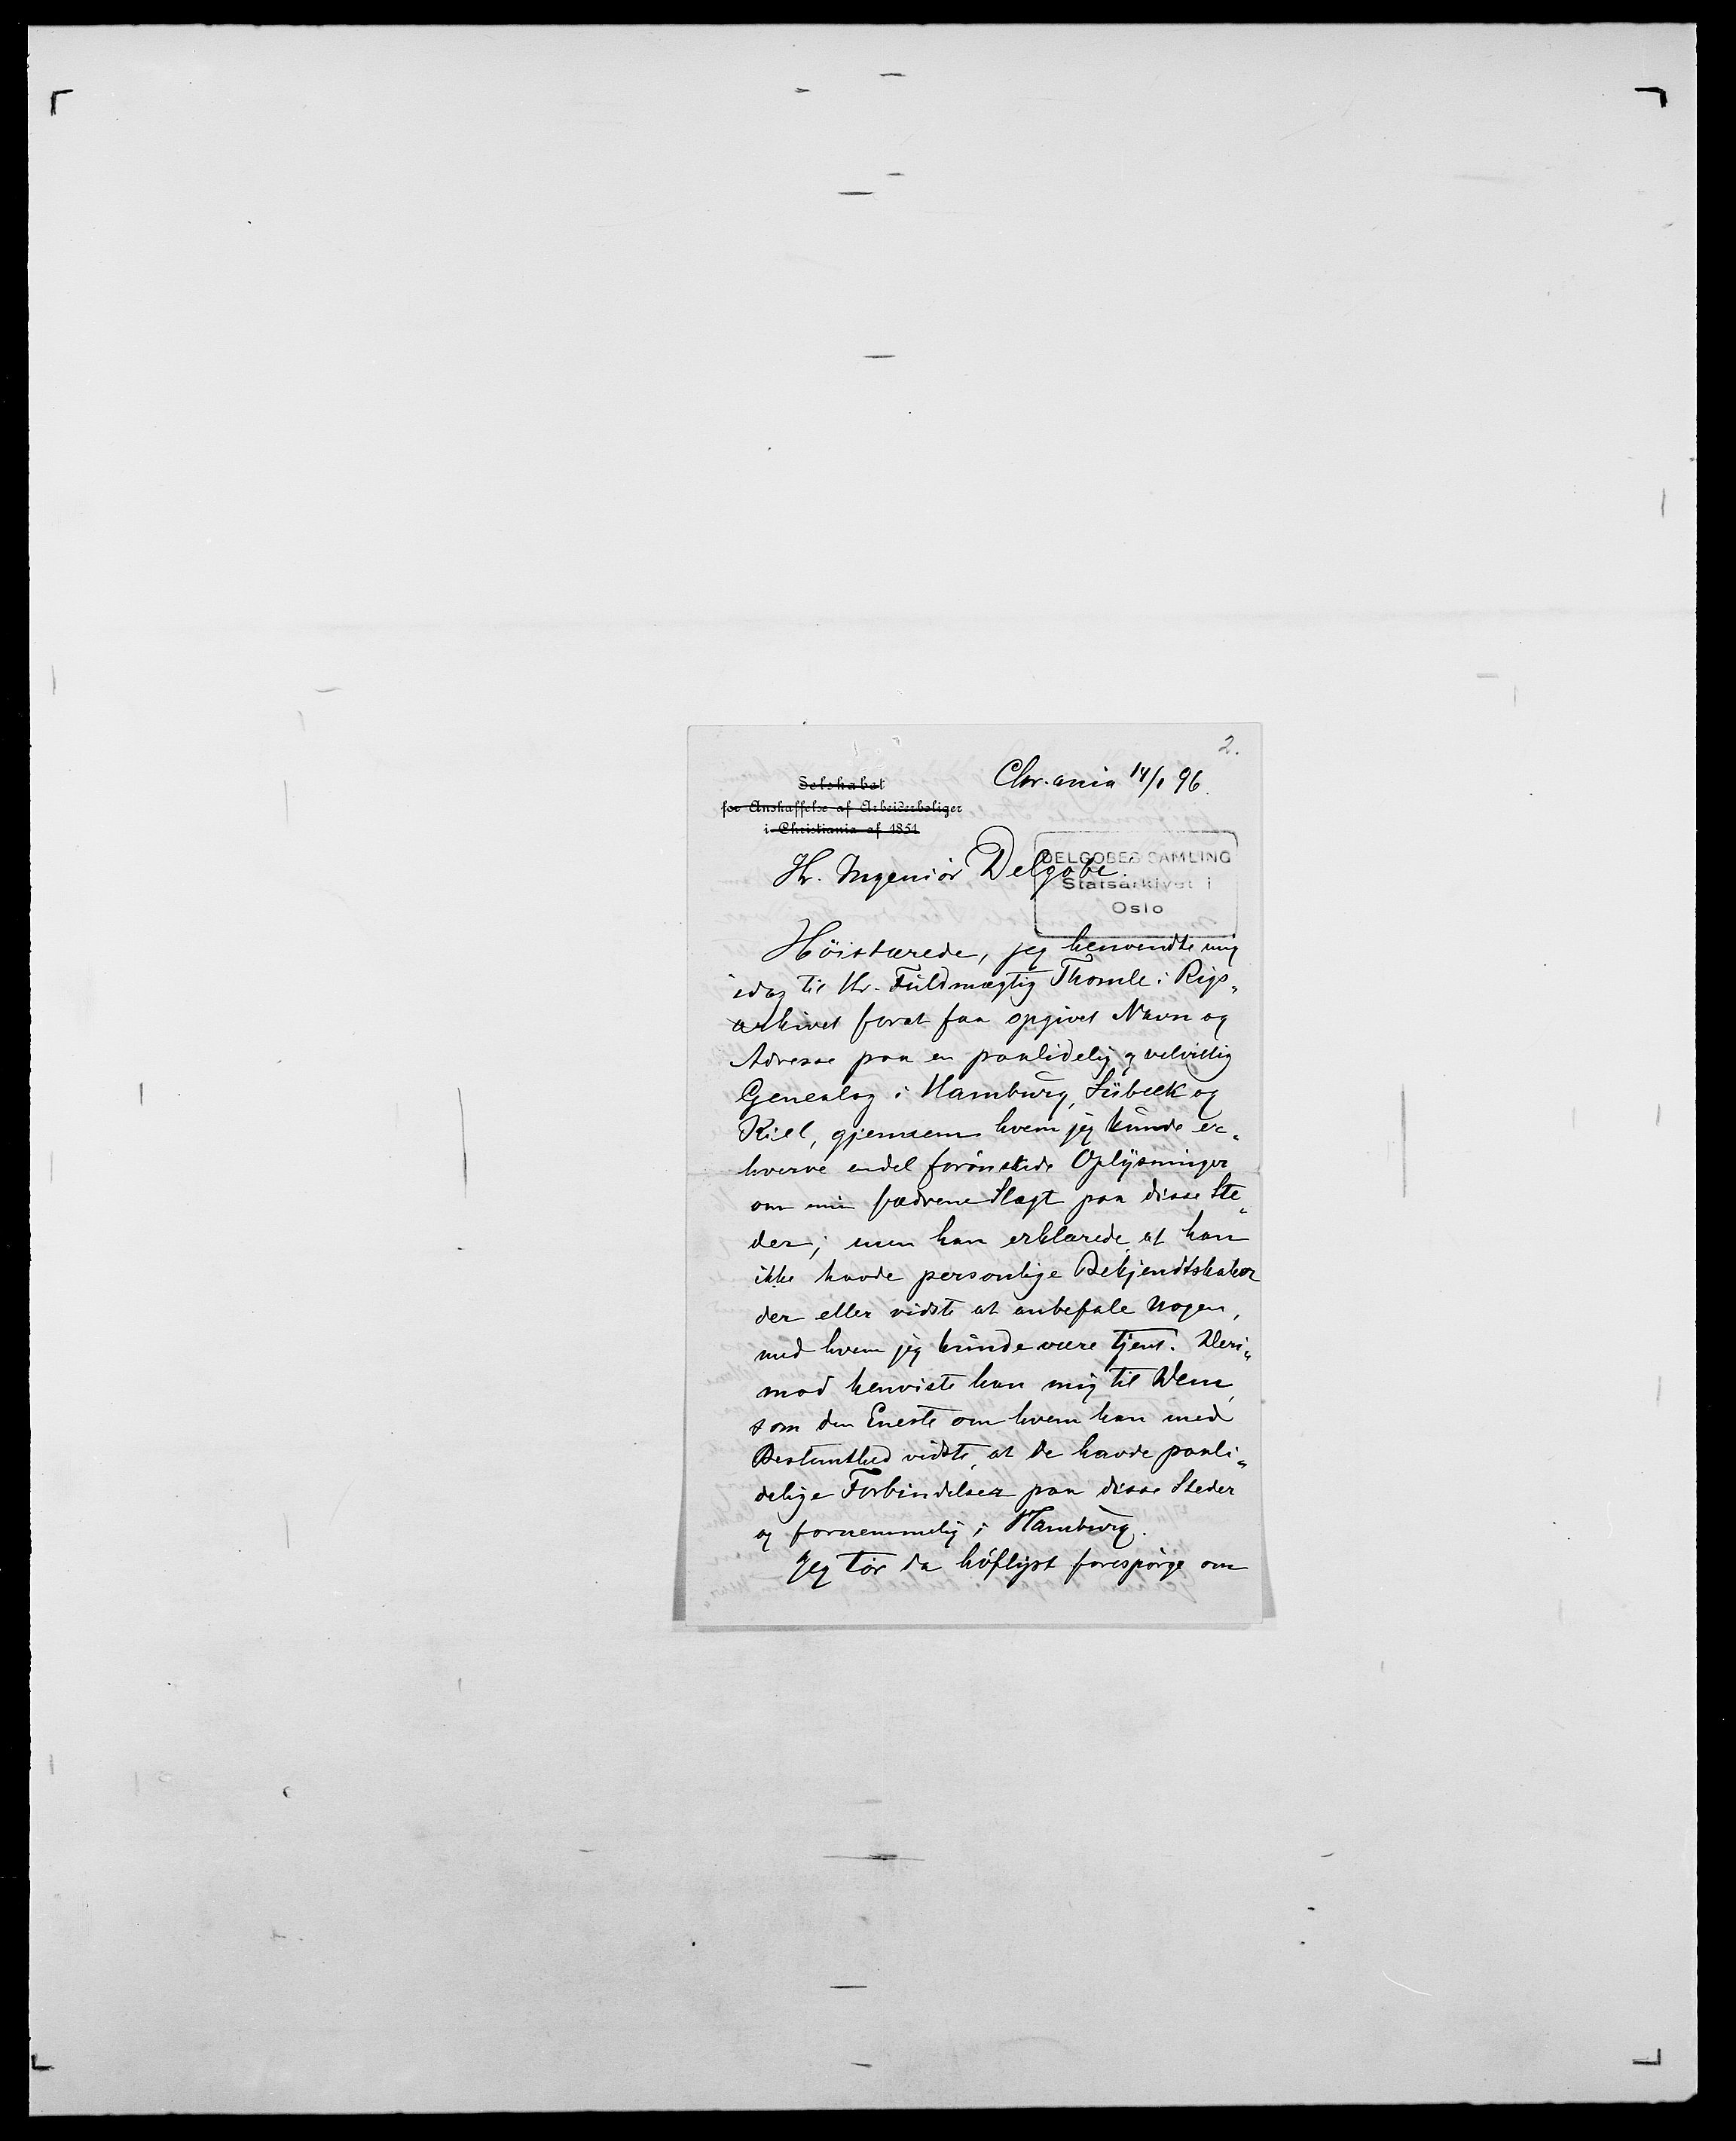 2.
Chr.ania 14/1 96.
Selskabet
for Anskaffelse af Arbeiderboliger
i Christiania af 1851
Hr. Ingeniör Delgobe.
DELGOBES SAMLING
Statsarkivet i
Oslo
Höistærede, jeg henvendte mig
idag til Hr. Fuldmægtig Thomle i Rigs„
arkivet forat faa opgivet Navn og
Adresse paa en paalidelig og velvillig
Genealog i Hamburg, Lübeck og
Kiel, gjennem hvem jeg kunde er„
hverve endel forönskede Oplysninger
om min fædrene Slægt paa disse Ste„
der; men han erklærede, at han
ikke havde personlige Bekjendtskaber
der eller vidste at anbefale Nogen,
med hvem jeg kunde være tjent. Deri„
mod henviste han mig til Dem,
som den Eneste om hvem han med
Bestemthed vidste, at De havde paali„
delige Forbindelser paa disse Steder
og fornemmelig i Hamburg.
Jeg tör da höfligst forespörge om